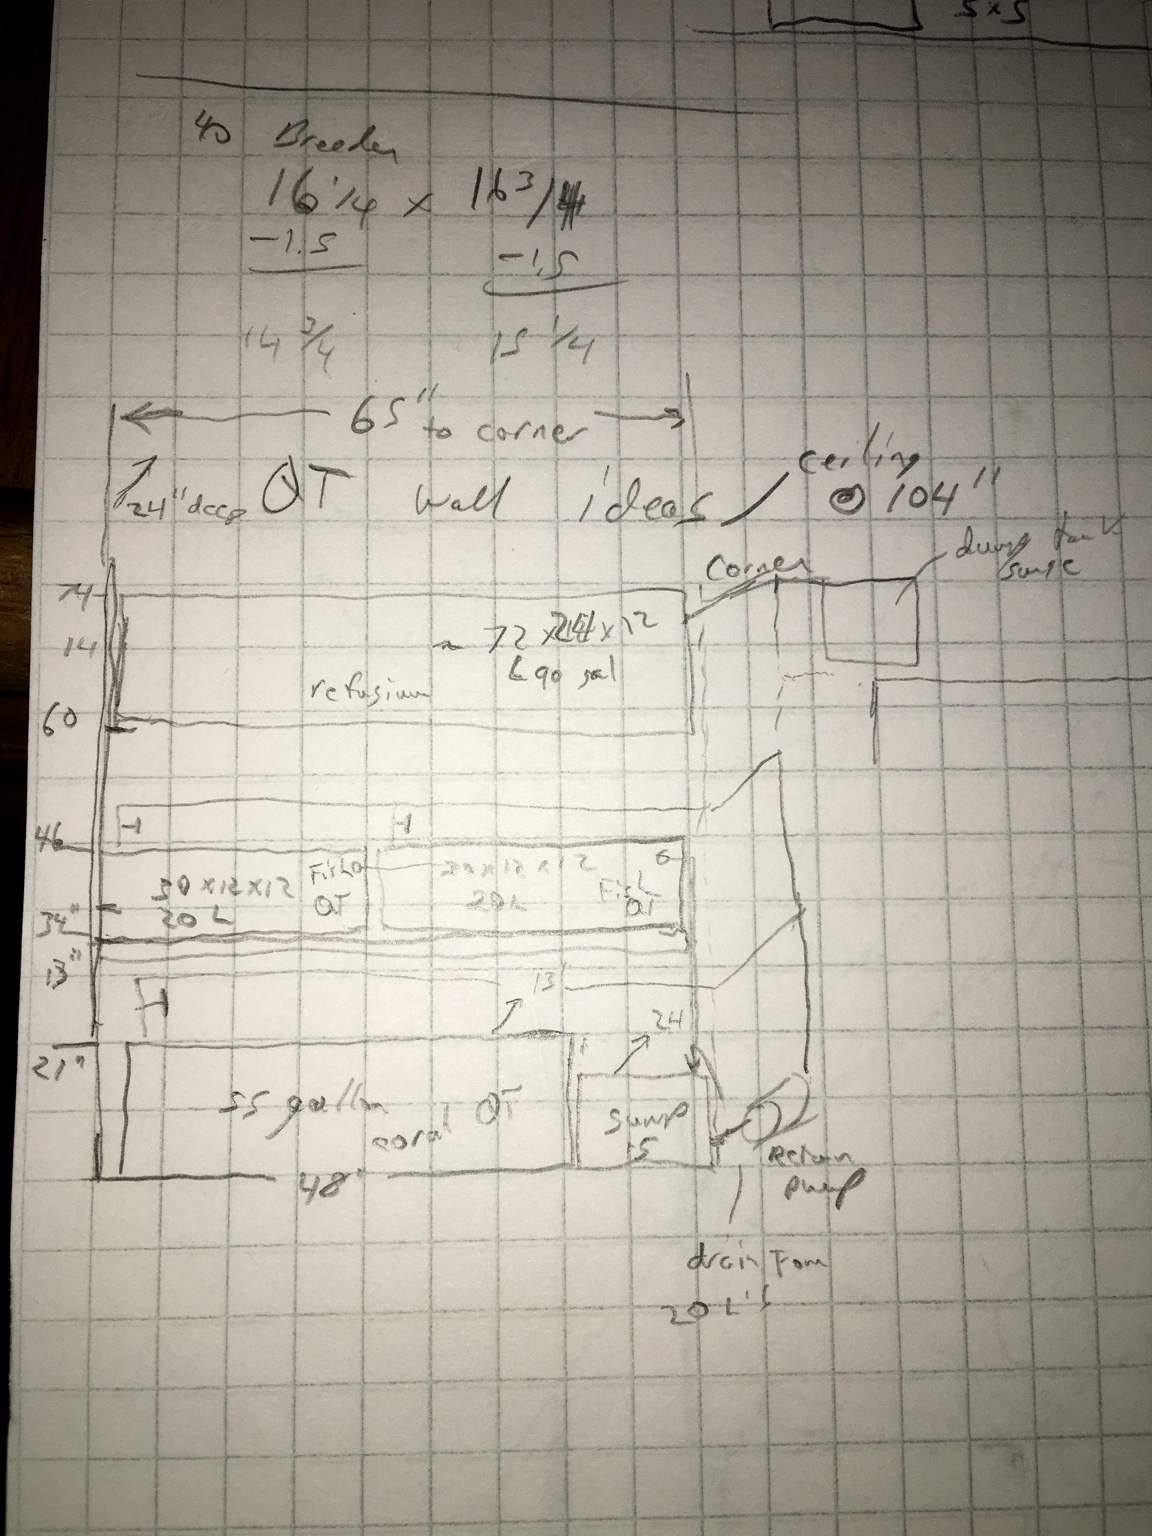 5 x 5
40 Breeder
16 1/4 x 16 3/4
-1.5 -1.5
14 3/4 15 1/4
65" to corner
24" deep QT wall ideas ceiling
@ 104"
corner dump tank
surge
74
14 ~ 72 x 24 x 12
60 refugium 90 gal
46
30 x 12 x 12 Fish 30 x 12 x 12
34" 20 L QT 20 L Fish
QT
13" 13"
24
21"
55 gallon sump
coral QT 15
48" Return
pump
drain from
20 L's